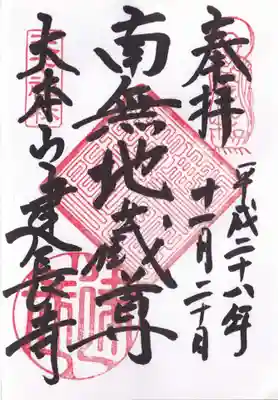 奉拝
平成二十八年
十一月二十日
南無地蔵尊
大本山建長寺